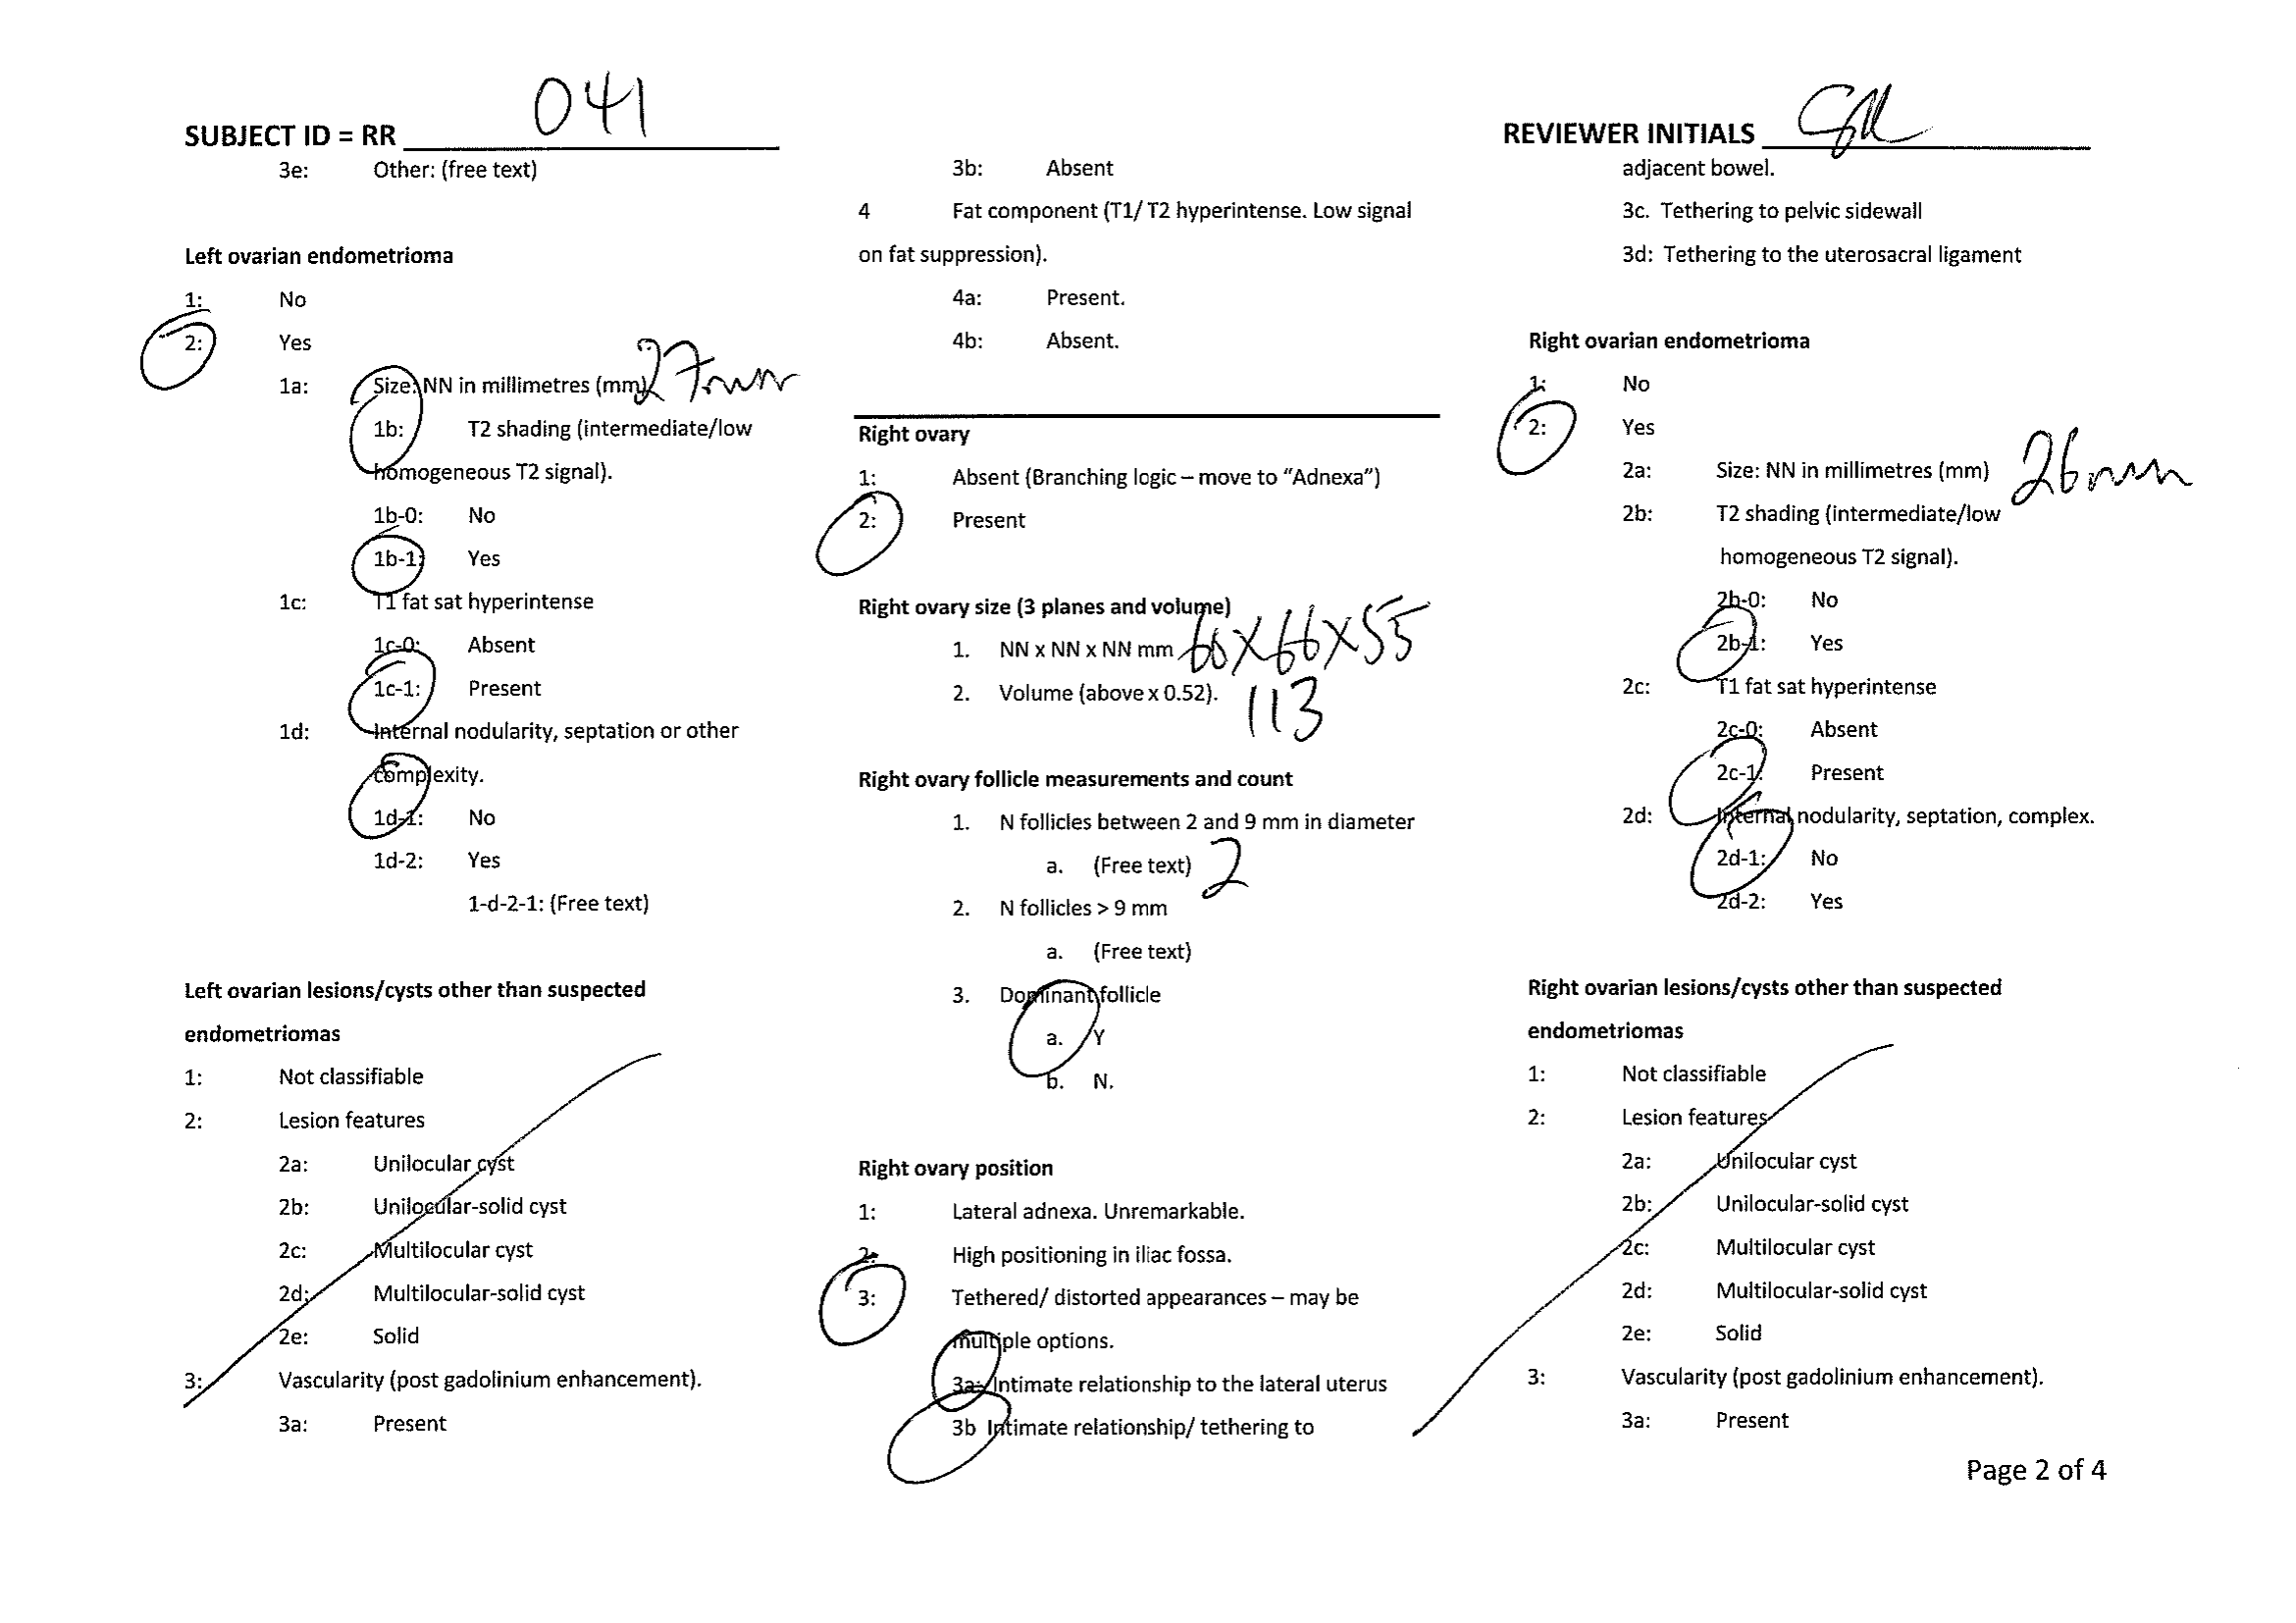 SUBJECT ID = RR 041
3e: Other: (free text)
Left ovarian endometrioma
1: No
2: Yes
1a: Size: NN in millimetres (mm) 27mm
1b: T2 shading (intermediate/low
homogeneous T2 signal).
1b-0: No
1b-1: Yes
1c: T1 fat sat hyperintense
1c-0: Absent
1c-1: Present
1d: Internal nodularity, septation or other
complexity.
1d-1: No
1d-2: Yes
1-d-2-1: (Free text)
Left ovarian lesions/cysts other than suspected
endometriomas
1: Not classifiable
2: Lesion features
2a: Unilocular cyst
2b: Unilocular-solid cyst
2c: Multilocular cyst
2d: Multilocular-solid cyst
2e: Solid
3: Vascularity (post gadolinium enhancement).
3a: Present
3b: Absent
4 Fat component (T1/ T2 hyperintense. Low signal
on fat suppression).
4a: Present.
4b: Absent.
Right ovary
1: Absent (Branching logic – move to “Adnexa”)
2: Present
Right ovary size (3 planes and volume)
1. NN x NN x NN mm 60x66x55
2. Volume (above x 0.52). 113
Right ovary follicle measurements and count
1. N follicles between 2 and 9 mm in diameter
a. (Free text) 2
2. N follicles > 9 mm
a. (Free text)
3. Dominant follicle
a. Y
b. N.
Right ovary position
1: Lateral adnexa. Unremarkable.
2: High positioning in iliac fossa.
3: Tethered/ distorted appearances – may be
multiple options.
3a: Intimate relationship to the lateral uterus
3b Intimate relationship/ tethering to
REVIEWER INITIALS
adjacent bowel.
3c. Tethering to pelvic sidewall
3d: Tethering to the uterosacral ligament
Right ovarian endometrioma
1: No
2: Yes
2a: Size: NN in millimetres (mm) 26mm
2b: T2 shading (intermediate/low
homogeneous T2 signal).
2b-0: No
2b-1: Yes
2c: T1 fat sat hyperintense
2c-0: Absent
2c-1: Present
2d: Internal nodularity, septation, complex.
2d-1: No
2d-2: Yes
Right ovarian lesions/cysts other than suspected
endometriomas
1: Not classifiable
2: Lesion features
2a: Unilocular cyst
2b: Unilocular-solid cyst
2c: Multilocular cyst
2d: Multilocular-solid cyst
2e: Solid
3: Vascularity (post gadolinium enhancement).
3a: Present
Page 2 of 4